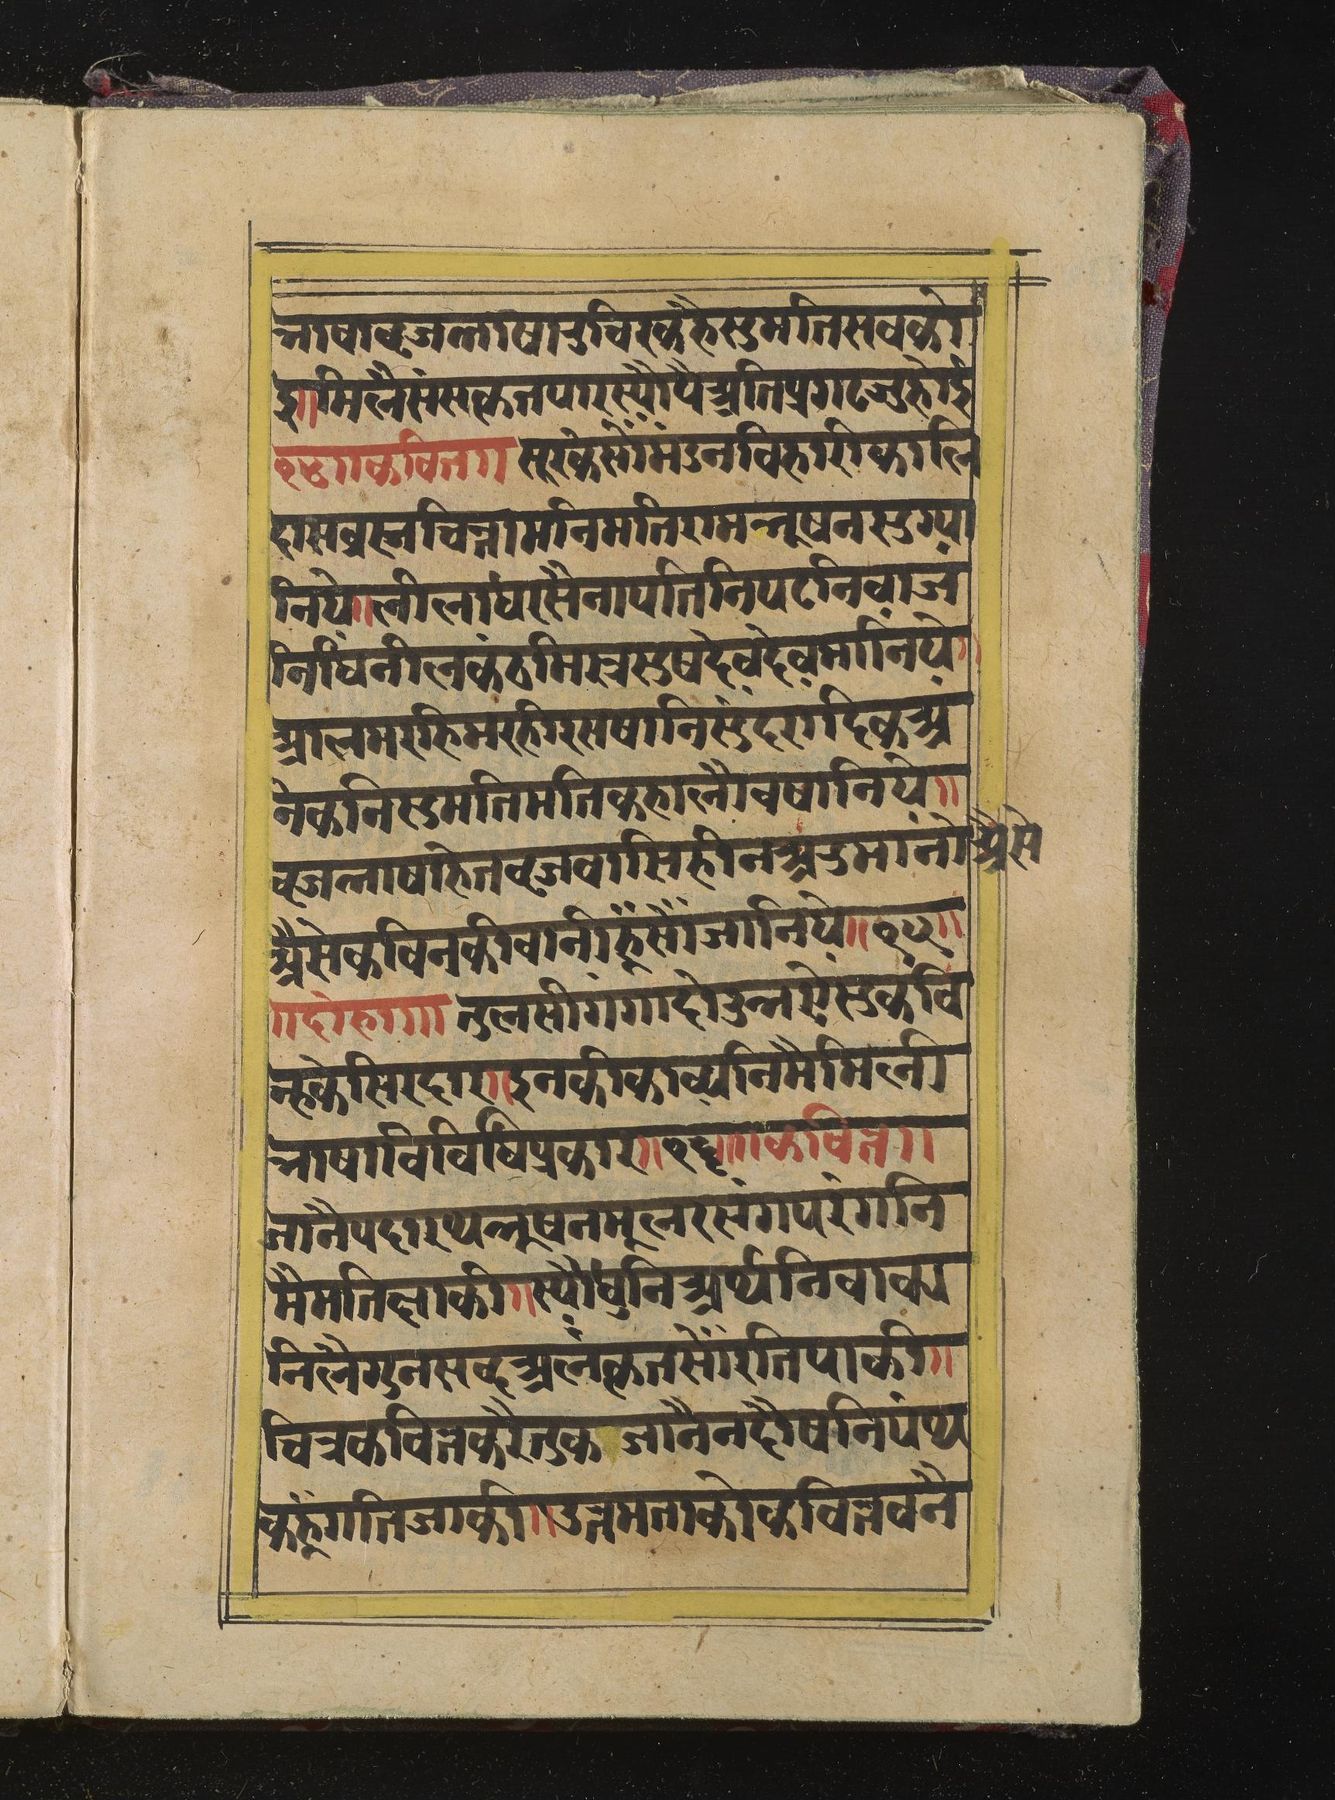 भाषाबृजभाषारुचिरकहैसुमतिसबको
इ॥मिलैसंसकृतपारस्यौपैअतिप्रगटजुहोई
१४॥कवित्त॥सूरकेसौमंडनबिहारीकालि
दासब्रह्मचिन्तामनिमतिरामभूषनसुग्या
निये॥लीलाधरसैनापतिनिपटनिवाज
निधिनीलकंठमिस्रसुषदेवदेवमानिये॥
आलमरहिमरहीरसषानिसुंदरादिकअ
नेकनिसुमतिमतिकहालौबषानिये॥
बृजभाषाहेतबृजवासिहीनअनुमानोऐसे
ऐसेकविनकीबानीहूँसौंजानिये॥१५॥
॥दोहा॥॥तुलसीगंगादोउभऐसुकवि
न्हकेसिरदार॥इनकीकाव्यनिमैमिली
भाषाविविधिप्रकार॥१६॥॥कवित्त॥
जानैपदारथभूषनमूलरसंगपरंगनि
मैमतिछाकी॥स्यौधुनिअर्थनिवाक्य
निलैगुनसब्दअलंकृतसौंरतिपाकी॥
चित्रकवित्तकरैतुकजानैनदौषनिपंथ
कहूंगतिजाकी॥उत्तमताकोकवित्तबनै